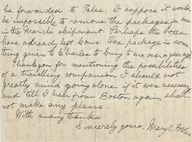 be forwarded to Palea. I suppose it would
be impossible to remove the packages from
the Marble shipment. Perhaps the boxes
have already left Cons. One package is some-
thing given to Charles to buy two over a year ago.
Thank you for mentioning the possibilities
of a travelling companion. I should not
greatly mind going alone if it was necessary
and till I hear from Boston again should
not make any plans.
With many thanks
Sincerely yours, Mary E.